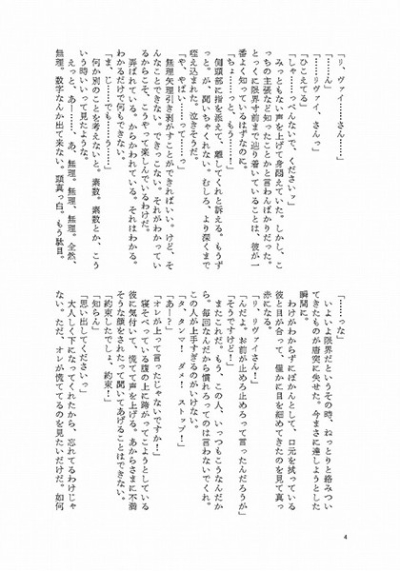 「リ、ヴァイ……さん……！」
「……ん」
「……リヴァイ、さんっ」
「ひこえてる」
「しゃ……べんないで、くださいッ」
みっともない声を上げて身悶えていた。しかし、こ
っちの主張など知ったことかと言わんばかりだった。
とっくに限界寸前まで辿り着いていることは、彼が一
番よく知っているはずなのに。
「ちょ……っと、もう……！」
側頭部に指を添えて、離してくれと訴える。もうず
っと、が、聞いちゃくれない。むしろ、より深くまで
咥え込まれた。泣きそうだ。
「や、やば……ッ……！」
無理矢理引き剥がすことができればいい。けど、そ
んなことできない。できっこない。それがわかってい
るからこそ、こうやって楽しんでいるわけだ。
弄ばれている。からかわれている。それはわかる。
わかるだけで何もできない。
「ま、じ……でも……う……」
何か別のことを考えないと。素数。素数とか、こう
いう時いいって見たような。
えっと、あー……、あ、無理。無理、無理。全然、
無理。数字なんか出て来ない。頭真っ白。もう駄目。
「……っな」
いよいよ限界だというその時、ねっとりと絡みつい
てきたものが唐突に失せた。今まさに達しようとした
瞬間に。
わけがわからずにぽかんとして、口元を拭っている
彼と目が合って、僅かに目を細めてきたのを見て真っ
赤になる。
「リ、リヴァイさん！」
「んだよ。お前が止めろ止めろって言ったんだろうが」
「そうですけど！」
まただこれだ。もう、この人、いっつもこうなんだか
ら。毎回なんだから慣れろってのは言わないでくれ。
この人が上手すぎるのがいけない。
「タ、タンマ！　ダメ！　ストップ！」
「あー？」
「オレが上って言ったじゃないですか！」
寝そべっている腹の上に跨がってこようとしている
彼に気付いて、慌てて声を上げる。あからさまに不満
そうな顔をされたって聞いてあげることはできない。
「約束したでしょ、約束！」
「知らん」
「思い出してくださいっ」
大人しく下になってくれたから、忘れてるわけじゃ
ない。ただ、オレが慌ててるのを見たいだけだ。如何
4